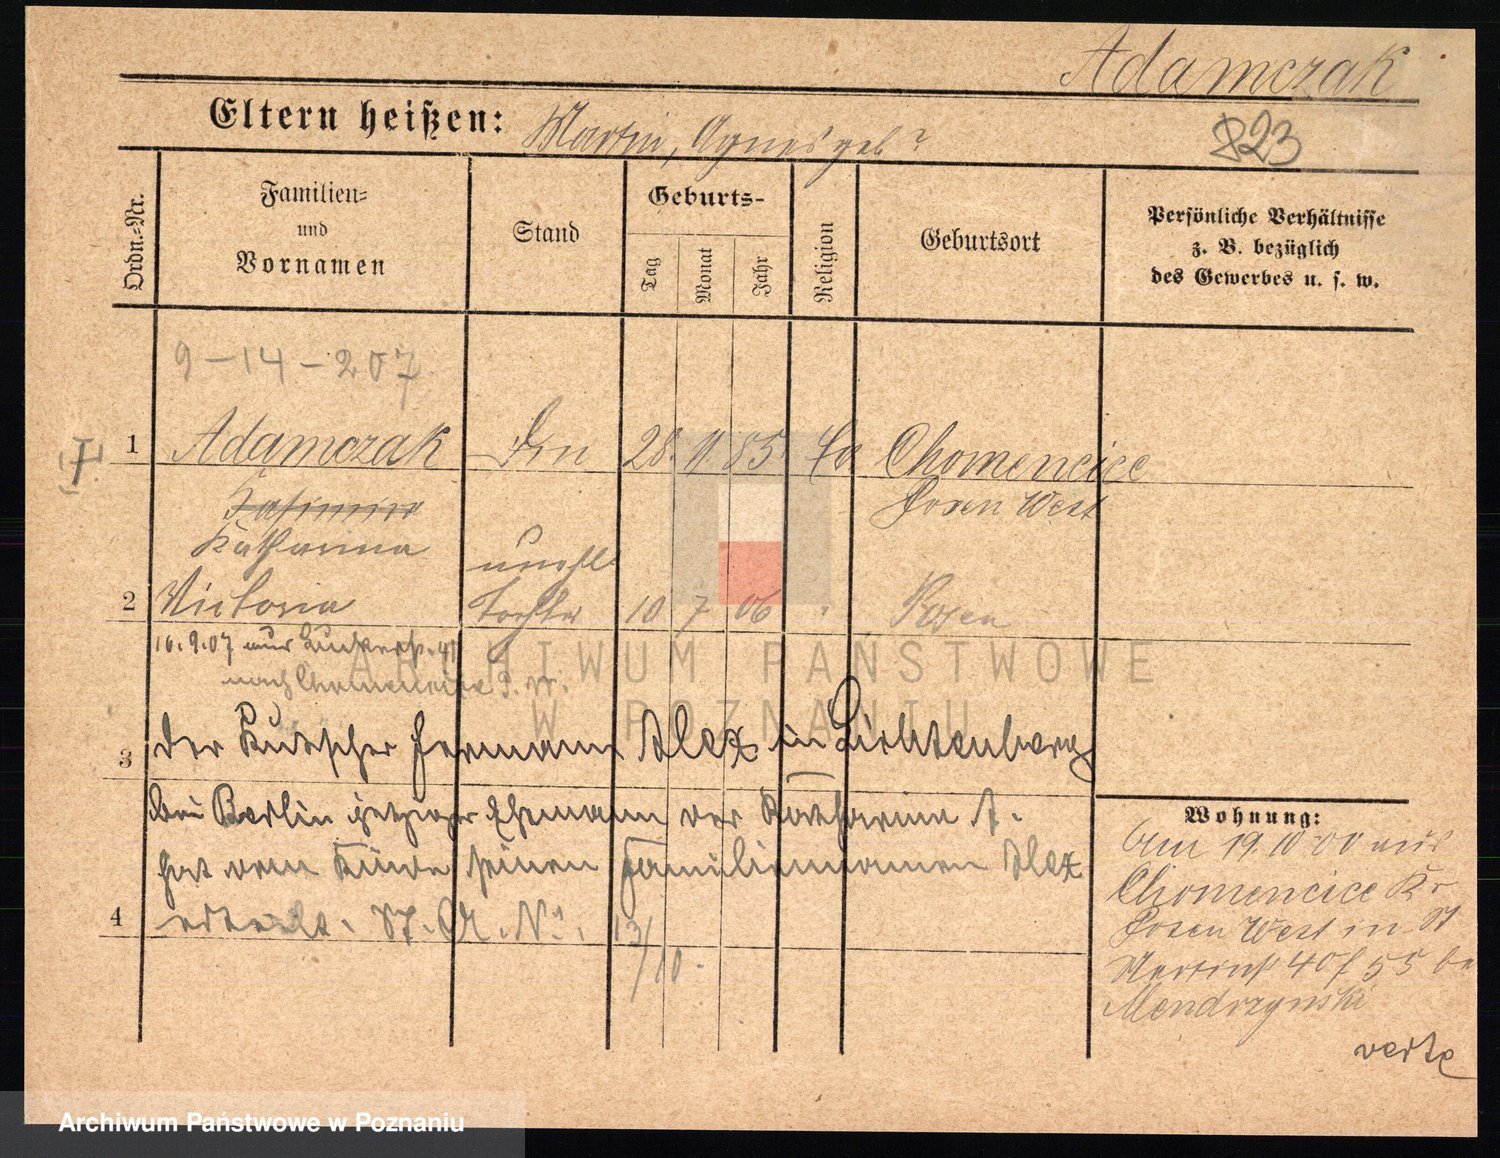 Adamczak
Eltern heißen: Martin, Agnes geb ?
823
Ordn.-Nr.
Familien-
und
Vornamen
Stand
Geburts-
Tag
Monat
Jahr
Religion
Geburtsort
Persönliche Verhältnisse
z. B. bezüglich
des Gewerbes u. s. w.
9-14-207
1 Adamczak 28. 11 85 Chomencice
Posen West
Katharina
unehl
2 Victoria Tochter 10 7 06 Posen
16.9.07 aus
nach Chomencice P. W.
ARCHIWUM PAŃSTWOWE
W POZNANIU
3 Der Kutscher Hermann Alex in Lichtenberg
bei Berlin jetziger Ehemann der Katharina A.
hat dem Kinde seinen Familiennamen Alex
4 erteilt. St. A. N. I. 13/10.
Wohnung:
Am 19.10 00 aus
Chomencice Kr
Posen West in St
Martinst 40 f 55 be
Mendrzynski
verte
Archiwum Państwowe w Poznaniu